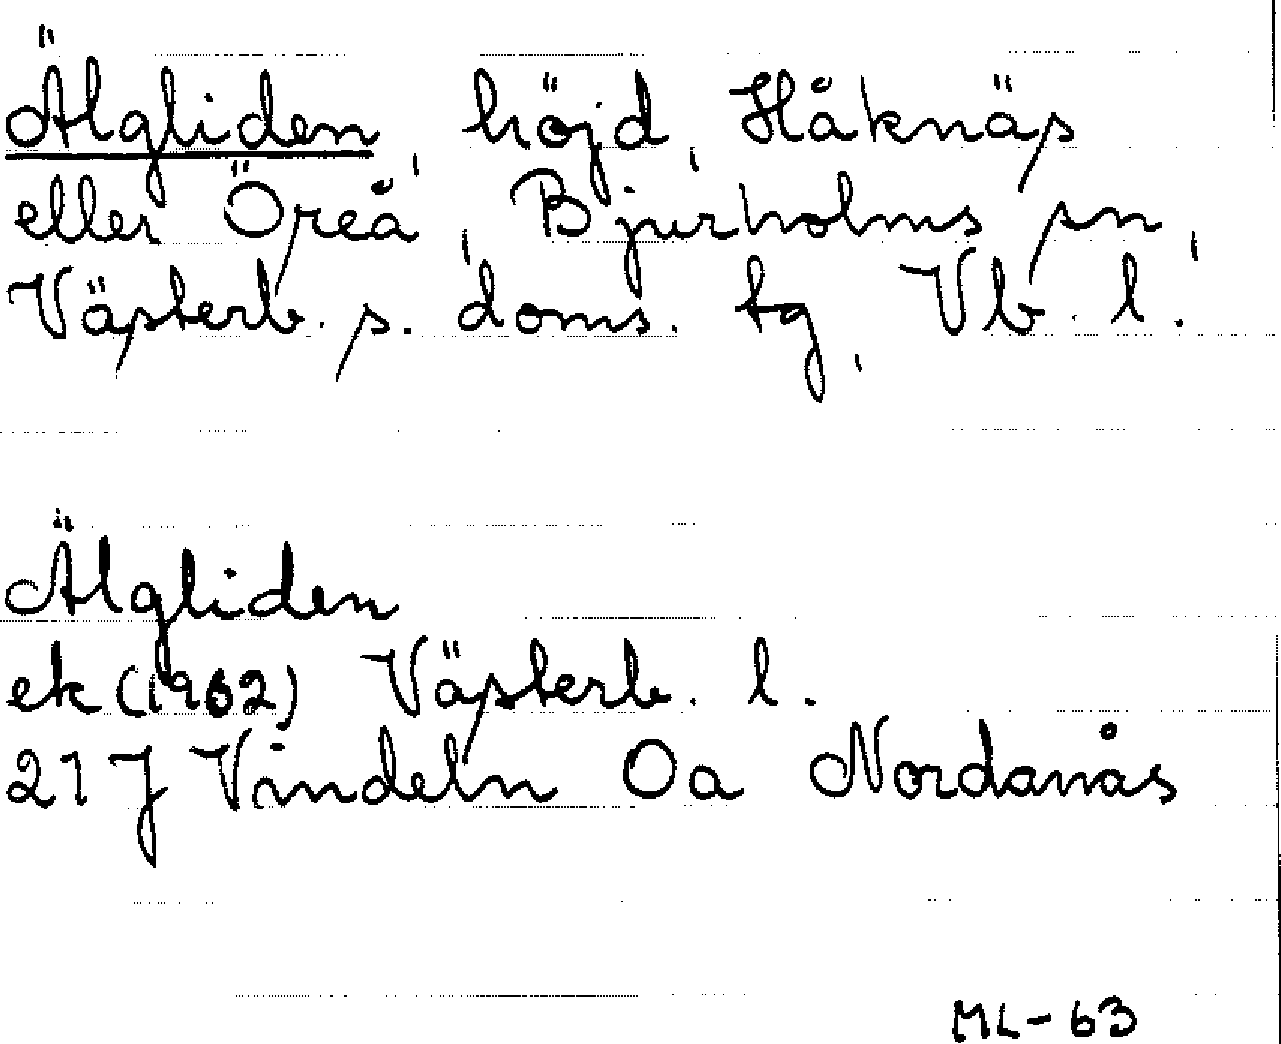 Älgliden, höjd, Håknäs
eller Öreå, Bjurholms sn,
Västerb. s. doms. tg, Vb. l.
Älgliden
ek (1962) Västerb. l.
21 J Vindeln Oa Nordanås
ML-63